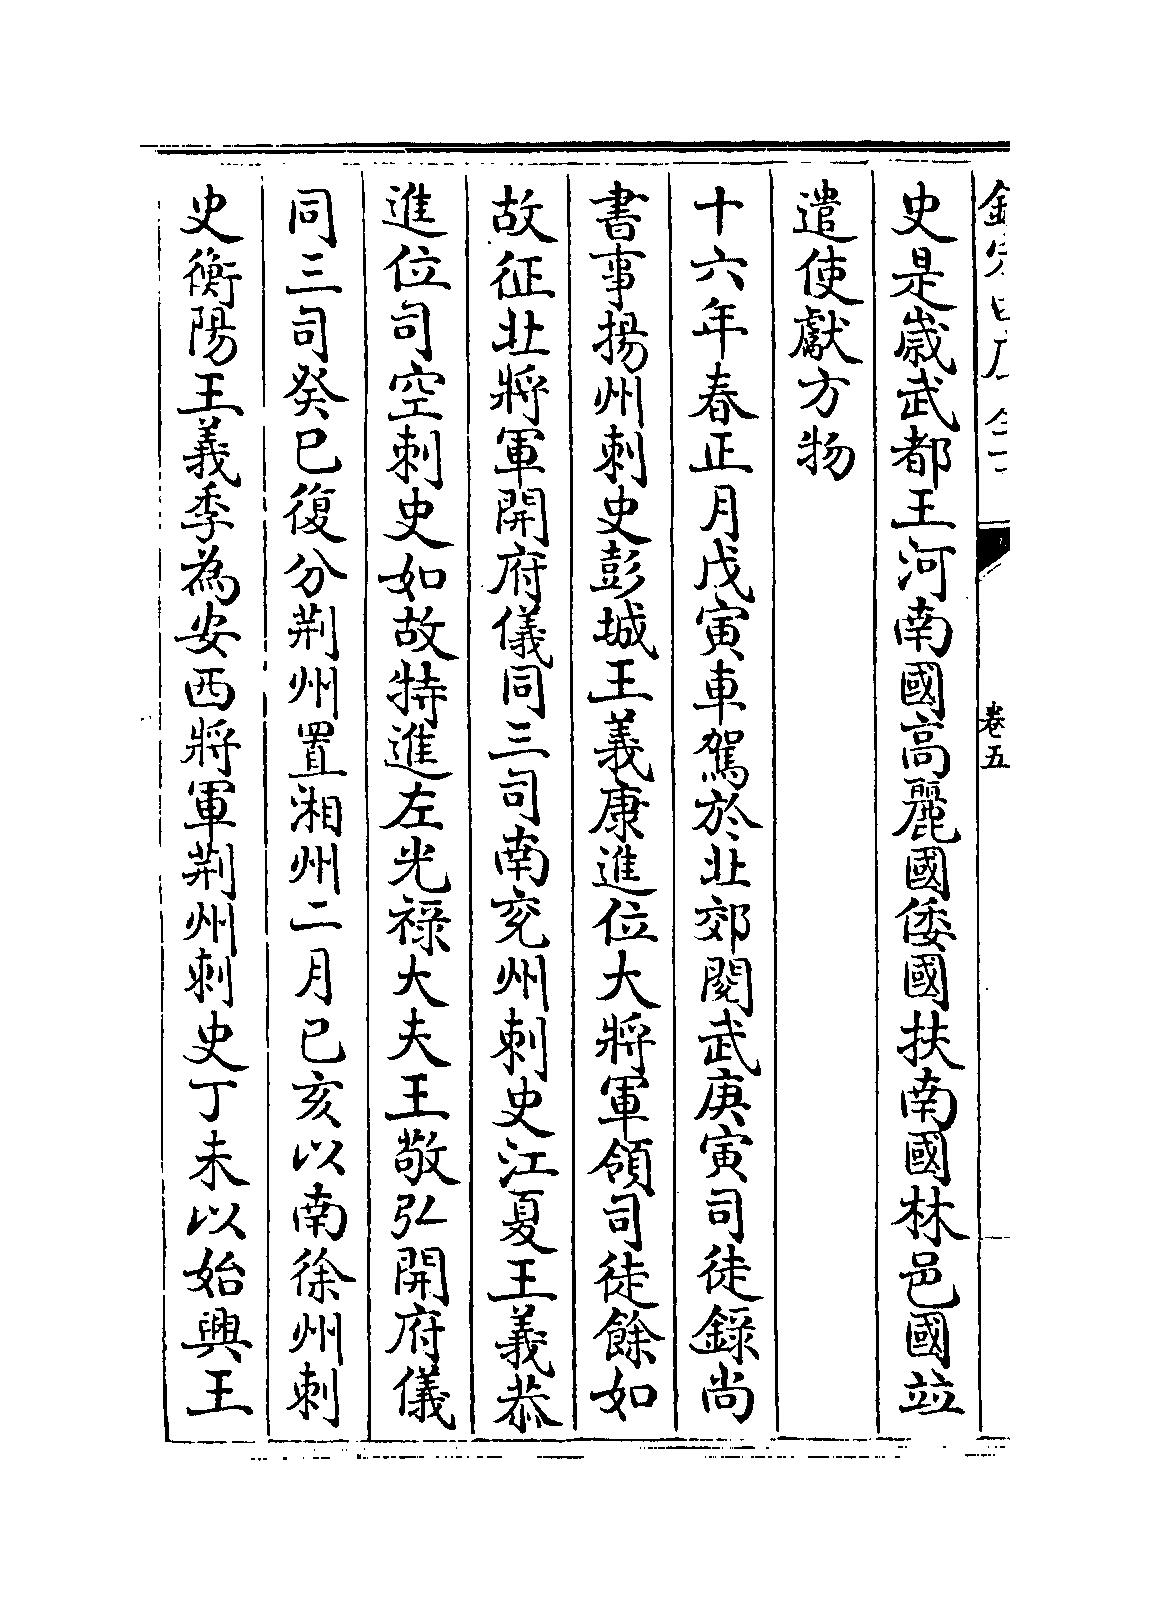 卷五
史是嵗武都王河南國高麗國倭國扶南國林邑國竝
遣使獻方物
十六年春正月戊寅車駕於北郊閱武庚寅司徒錄尚
書事揚州刺史彭城王義康進位大將軍領司徒餘如
故征北將軍開府儀同三司南兖州刺史江夏王義恭
進位司空刺史如故特進左光祿大夫王敬弘開府儀
同三司癸巳復分荆州置湘州二月已亥以南徐州刺
史衡陽王義季為安西將軍荆州刺史丁未以始興王